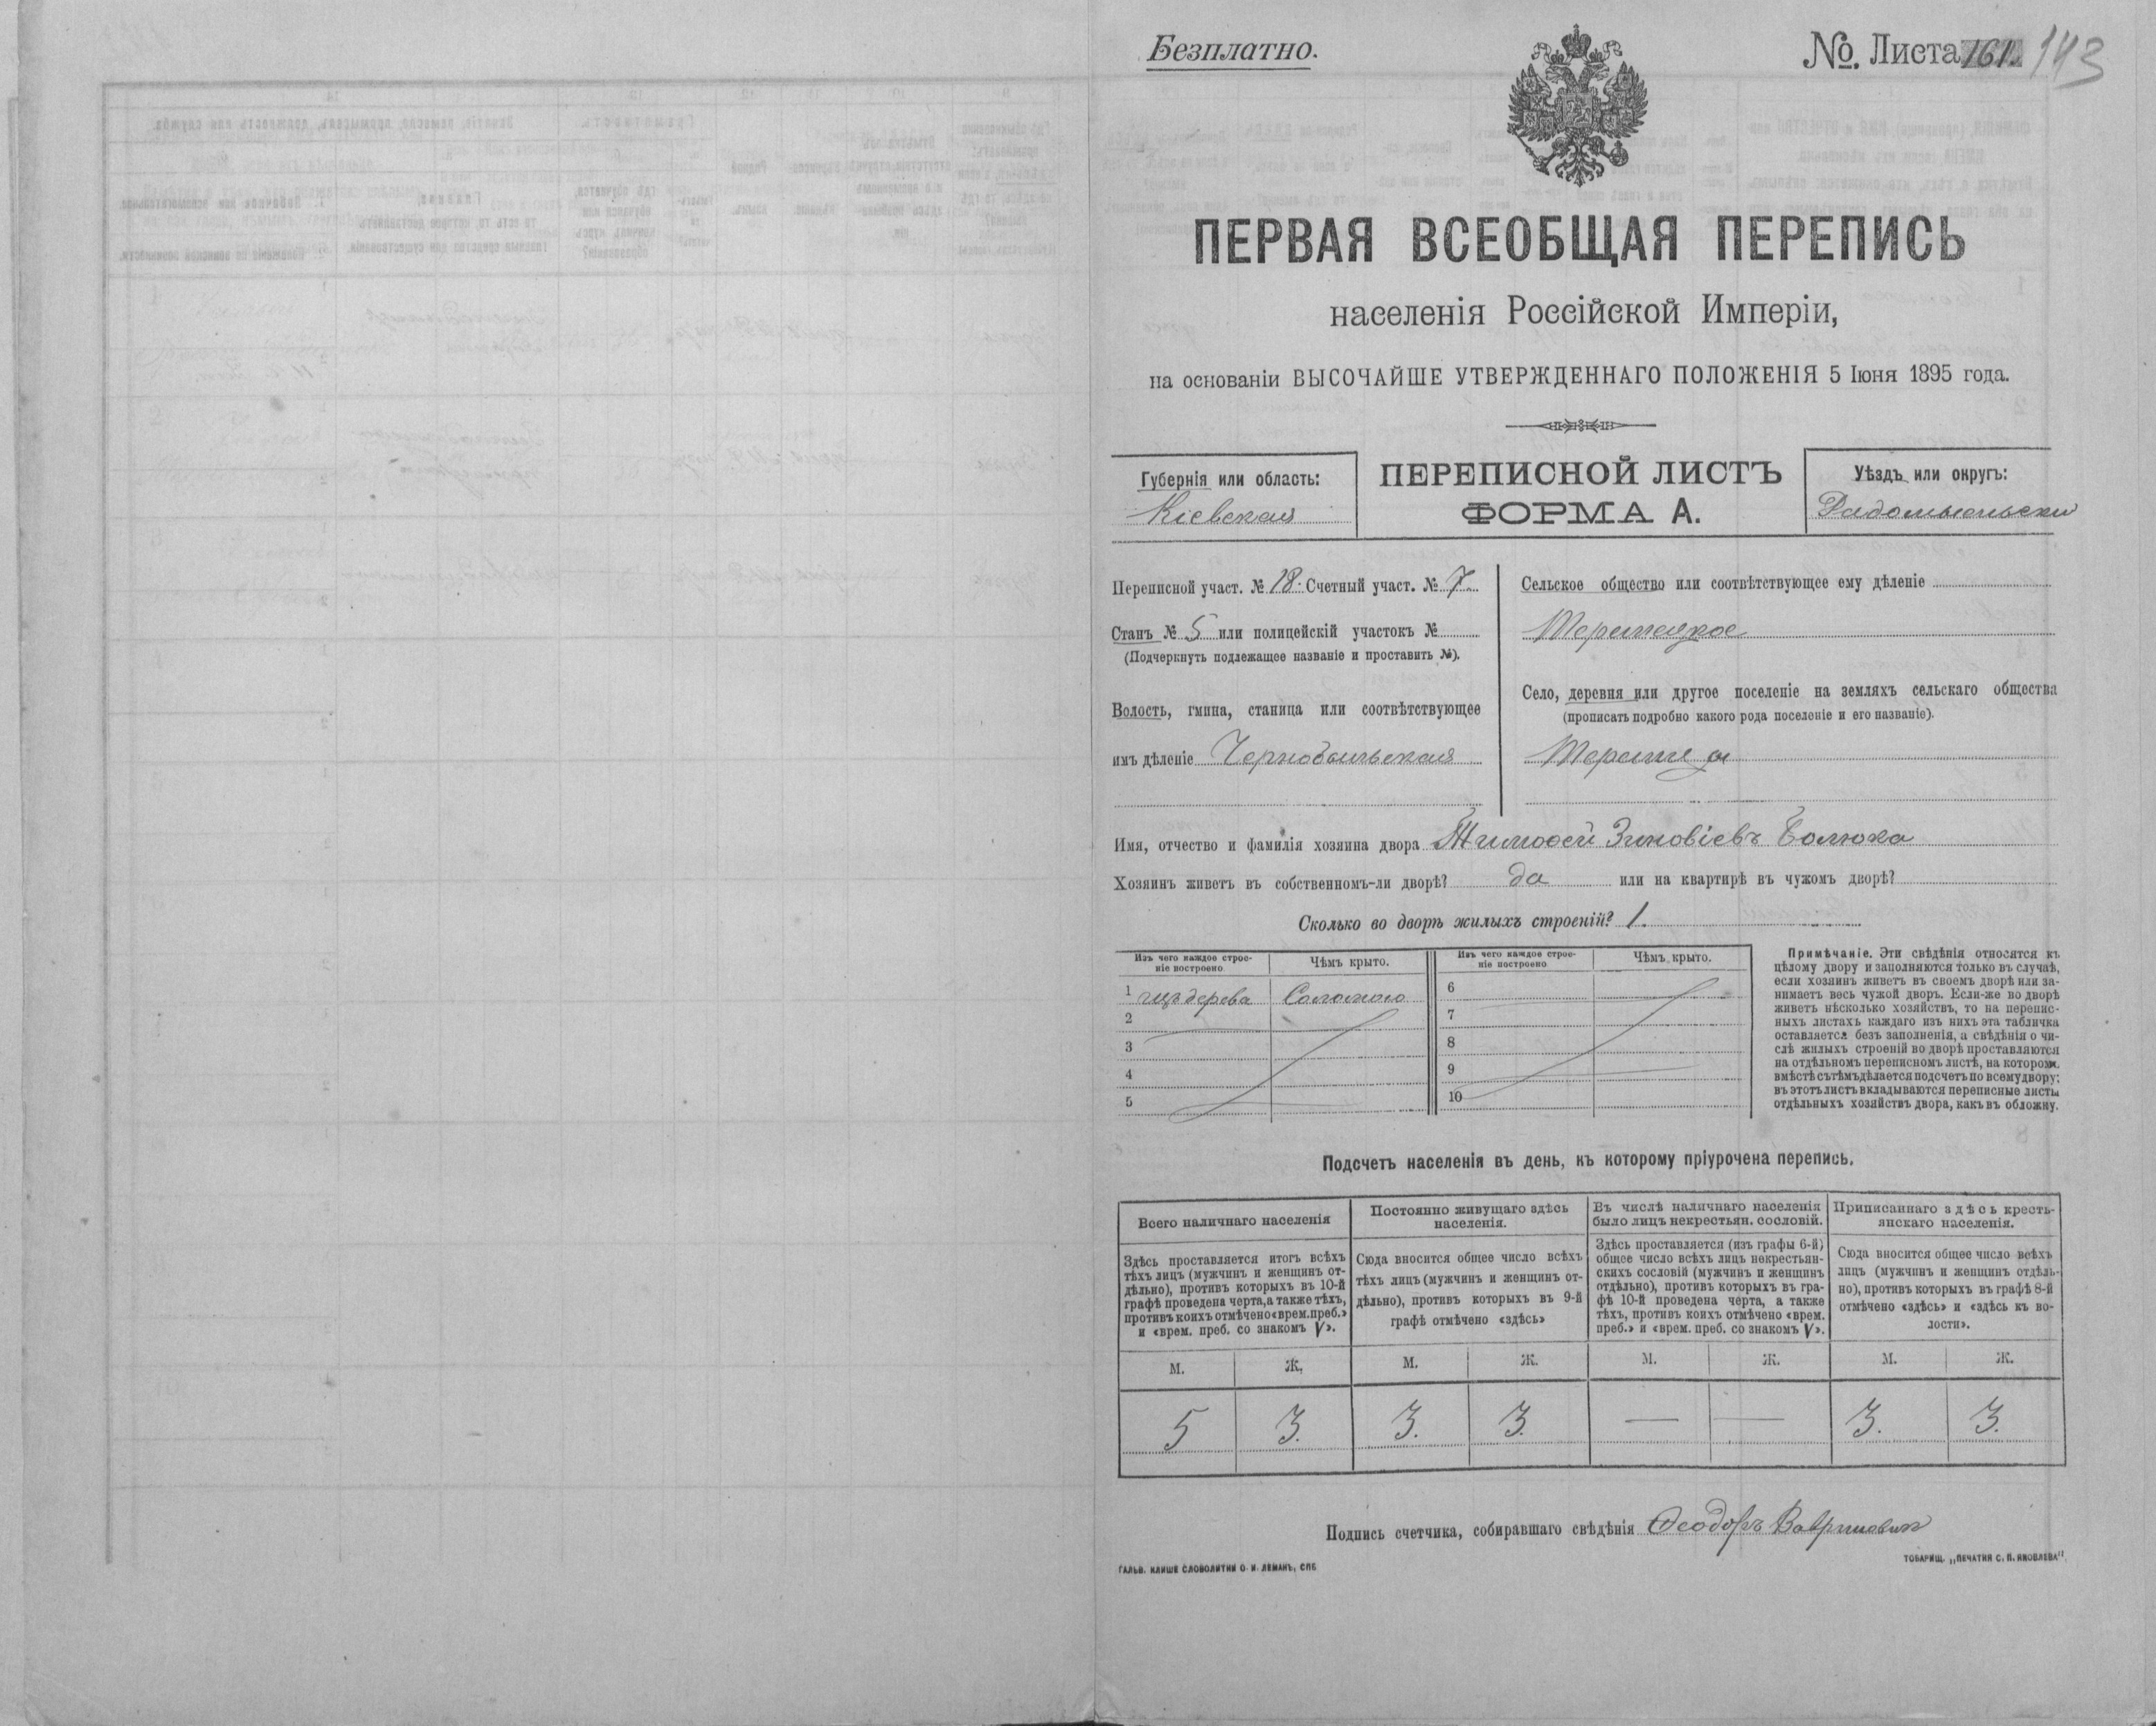 Безплатно.
№. Листа 161. 143
ПЕРВАЯ ВСЕОБЩАЯ ПЕРЕПИСЬ
населенія Россійской Имперіи,
на основаніи ВЫСОЧАЙШЕ УТВЕРЖДЕННАГО ПОЛОЖЕНІЯ 5 Іюня 1895 года.
Губернія или область:
Кіевская
ПЕРЕПИСНОЙ ЛИСТЪ
ФОРМА А.
Уѣздъ или округъ:
Радомысльски
Переписной участ. № 18. Счетный участ. № 7
Станъ № 5 или полицейскій участокъ №
(Подчеркнуть подлежащее названіе и проставить №).
Волость, гмина, станица или соотвѣтствующее
имъ дѣленіе Чернобыльская
Сельское общество или соотвѣтствующее ему дѣленіе
Теремецкое
Село, деревня или другое поселеніе на земляхъ сельскаго общества
(прописать подробно какого рода поселеніе и его названіе).
Теремцы
Имя, отчество и фамилія хозяина двора Тимофей Зиновіевъ
Хозяинъ живетъ въ собственномъ-ли дворѣ? да или на квартирѣ въ чужомъ дворѣ?
Сколько во дворѣ жилыхъ строеній? 1.
Изъ чего каждое строе-
ніе построено
Чѣмъ крыто.
Изъ чего каждое строе-
ніе построено
Чѣмъ крыто.
1 изъ дерева Соломою
2
3
4
5
6
7
8
9
10
Примѣчаніе. Эти свѣдѣнія относятся къ
цѣлому двору и заполняются только въ случаѣ,
если хозяинъ живетъ въ своемъ дворѣ или за-
нимаетъ весь чужой дворъ. Если-же во дворѣ
живетъ нѣсколько хозяйствъ, то на перепис-
ныхъ листахъ каждаго изъ нихъ эта табличка
оставляется безъ заполненія, а свѣдѣнія о чи-
слѣ жилыхъ строеній во дворѣ проставляются
на отдѣльномъ переписномъ листѣ, на которомъ,
вмѣстѣ съ тѣмъ дѣлается подсчетъ по всему двору;
въ этотъ листъ вкладываются переписные листы
отдѣльныхъ хозяйствъ двора, какъ въ обложку.
Подсчетъ населенія въ день, къ которому пріурочена перепись.
Всего наличнаго населенія
Здѣсь проставляется итогъ всѣхъ
тѣхъ лицъ (мужчинъ и женщинъ от-
дѣльно), противъ которыхъ въ 10-й
графѣ проведена черта, а также тѣхъ,
противъ коихъ отмѣчено «врем. преб.»
и «врем. преб. со знакомъ V».
Постоянно живущаго здѣсь
населенія.
Сюда вносится общее число всѣхъ
тѣхъ лицъ (мужчинъ и женщинъ от-
дѣльно), противъ которыхъ въ 9-й
графѣ отмѣчено «здѣсь»
Въ числѣ наличнаго населенія
было лицъ некрестьян. сословій.
Здѣсь проставляется (изъ графы 6-й)
общее число всѣхъ лицъ некрестьян-
скихъ сословій (мужчинъ и женщинъ
отдѣльно), противъ которыхъ въ гра-
фѣ 10-й проведена черта, а также
тѣхъ, противъ коихъ отмѣчено «врем.
преб.» и «врем. преб. со знакомъ V».
Приписаннаго здѣсь кресть-
янскаго населенія.
Сюда вносится общее число всѣхъ
лицъ (мужчинъ и женщинъ отдѣль-
но), противъ которыхъ въ графѣ 8-й
отмѣчено «здѣсь» и «здѣсь къ во-
лости».
М. Ж. М. Ж. М. Ж. М. Ж.
5 3. 3. 3. — — 3. 3.
Подпись счетчика, собиравшаго свѣдѣнія Ѳеодоръ
ГАЛЬВ. КЛИШЕ СЛОВОЛИТНИ О. И. ЛЕМАНЪ, СПБ
ТОВАРИЩ. „ПЕЧАТНЯ С. П. ЯКОВЛЕВА"